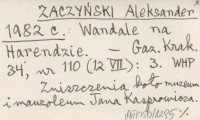 ZACZYŃSKI Aleksander
1982 c. Wandale na
Harendzie. — Gaz. Krak.
34, nr 110 (12 VIII): 3. WHP
Zniszczenia koło muzeum
i mauzoleum Jana Kasprowicza.